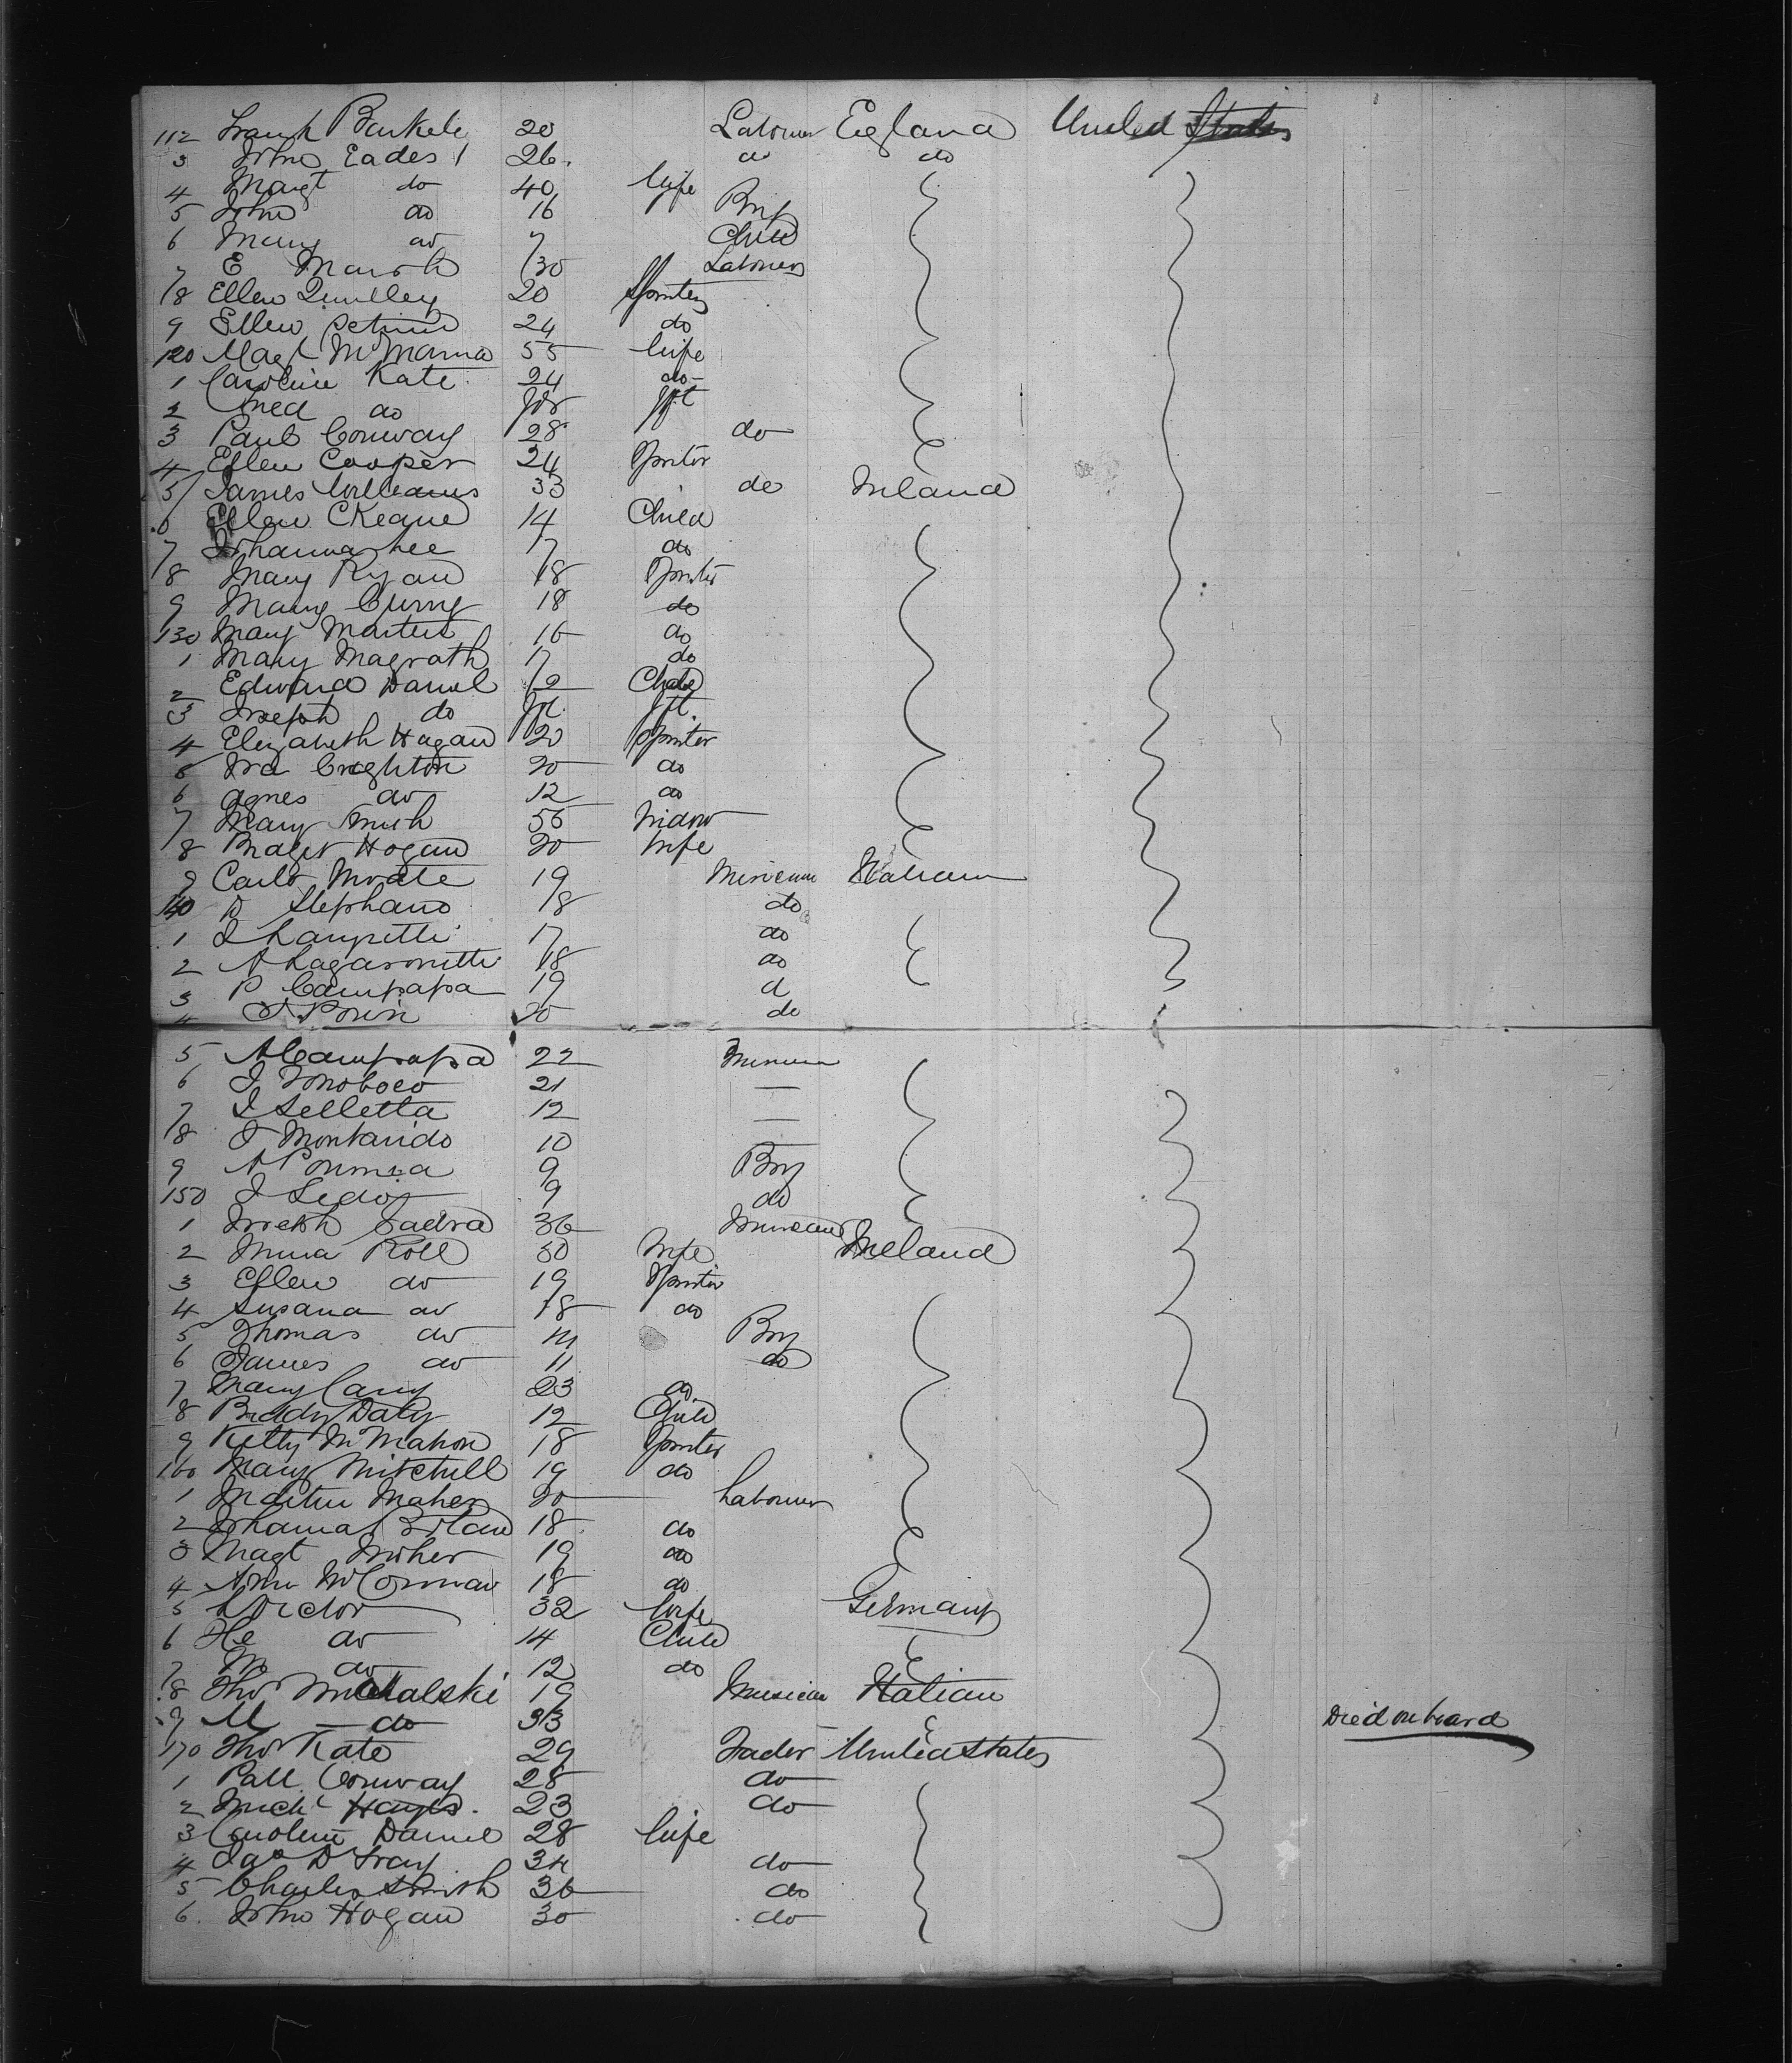 112 Frank Barkele 20 Labourer England United States
3 John Eades 26 do do
4 Margt do 40 Wife
5 John do 16 Boy
6 Mary do 7 Child
7 E Marsh 30 Labourer
8 Ellen 20 Spinster
9 Ellen 24 do
120 Magt McMama 55 Wife
1 Caroline Kate 24 do
2 Fred do Inft
3 Paul Conway 28 do
4 Ellen Cooper 24 Spinster
5 James Williams 33 do Ireland
6 Ellen OKeane 14 Child
7 Johanna Lee 17 do
8 Mary Ryan 18 Spinster
9 Mary Curry 18 do
130 Mary Martin 16 do
1 Mary Magrath 17 do
2 Edward Daniel 2 Child
3 Joseph do Inft
4 Elizabeth Hagan 20 Spinster
5 Ira Creghton 20 do
6 Agnes do 12 do
7 Mary Smith 56 Widow
8 Braget Hogan 20 Wife
9 Carlo 19 Musician Italian
140 D Stephano 18 do
1 17 do
2 A Lagaronitti 18 do
3 P Campapa 19 d
4 20 do
5 A Campapa 22 Musician
6 21 —
7 I Selletta 12 —
8 F Montarido 10 —
9 9 Boy
150 9 do
1 Joseph Cadra 36 Musician
2 Roll 50 Wife Ireland
3 Ellen do 19 Spinster
4 Susana do 18 do
5 Thomas do 14 Boy
6 James do 11 do
7 Mary Cary 23 do
8 Biddy Daly 12 Child
9 Kitty McMahon 18 Spinster
160 Mary Mitchell 19 do
1 Martin Maher 20 Labourer
2 Johana 18 do
3 Magt Maher 19 do
4 Ann McCormac 18 do
5 32 Wife Germany
6 He do 14 Child
7 M do 12 do
8 Tho Michalski 19 Musician Italian
9 M — do 33 Died on board
170 Tho Kate 29 Trader United States
1 Patt Conway 28 do
2 Michl Hayes 23 do
3 Caroline Daniel 28 Wife
4 Jas 34 do
5 Charles Smith 36 do
6 John Hogan 30 do